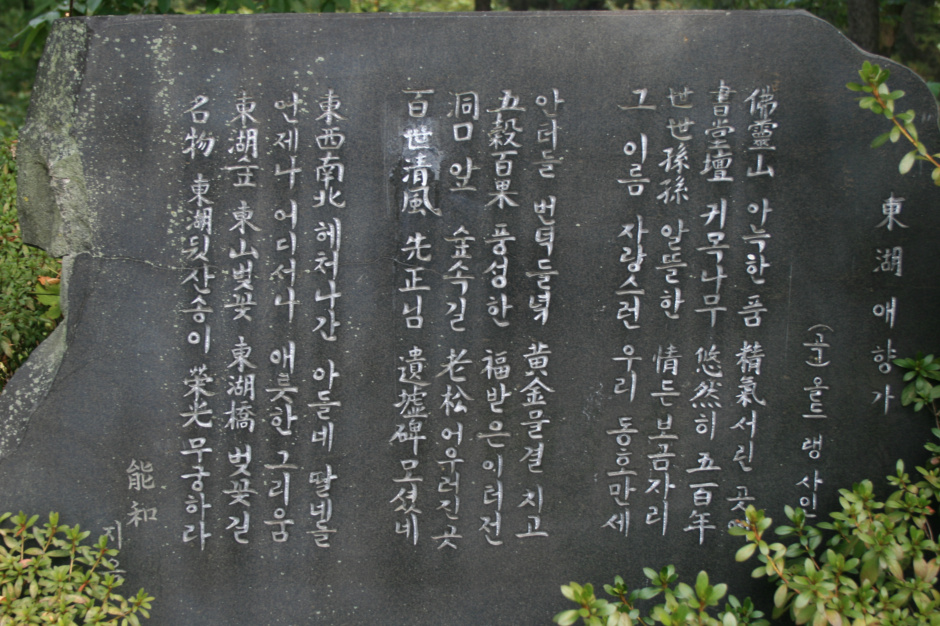 東湖애향가
(곡) 올드 랭 사인
佛靈山 아늑한 품 精氣서린 곳에
書堂壇 귀목나무 悠然히 五百年
世世孫孫 알뜰한 情든 보금자리
그 이름 자랑스런 우리 동호만세
안터들 번덕들녘 黃金물결 치고
五穀百果 풍성한 福받은이터전
洞口앞 숲속길 老松어우러진곳
百世清風 先正님 遺墟碑모셨네
東西南北 헤처나간 아들네 딸네들
언제나 어디서나 애틋한그리움
東湖숲 東山벚꽃 東湖橋 벚꽃길
名物 東湖뒷산송이 榮光무궁하라
能和 지음